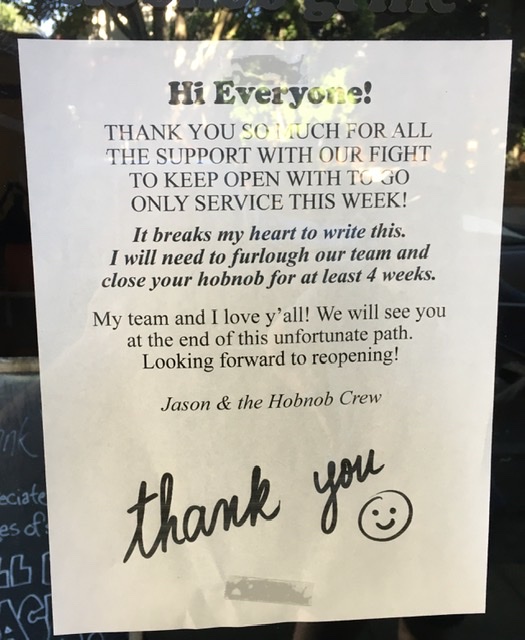 Hi Everyone!
THANK YOU SO MUCH FOR ALL
THE SUPPORT WITH OUR FIGHT
TO KEEP OPEN WITH TO GO
ONLY SERVICE THIS WEEK!
It breaks my heart to write this.
I will need to furlough our team and
close your hobnob for at least 4 weeks.
My team and I love y'all! We will see you
at the end of this unfortunate path.
Looking forward to reopening!
Jason & the Hobnob Crew
thank you